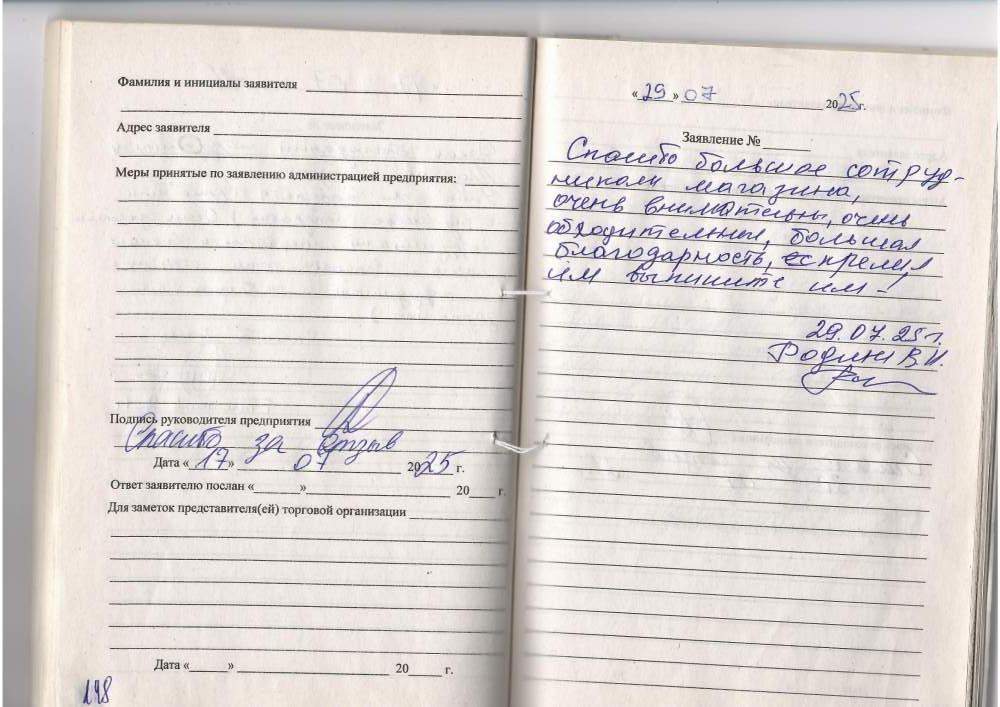 Фамилия и инициалы заявителя
Адрес заявителя
Меры принятые по заявлению администрацией предприятия:
Подпись руководителя предприятия
Спасибо за отзыв
Дата «17» 07 2025 г.
Ответ заявителю послан «      »            20    г.
Для заметок представителя(ей) торговой организации
Дата «      »            20    г.
198
«29» 07 2025г.
Заявление №
Спасибо большое сотруд-
никам магазина,
очень внимательны, очень
обходительны, большая
благодарность,
им выпишите им -!
29.07.25г.
Родин В.И.